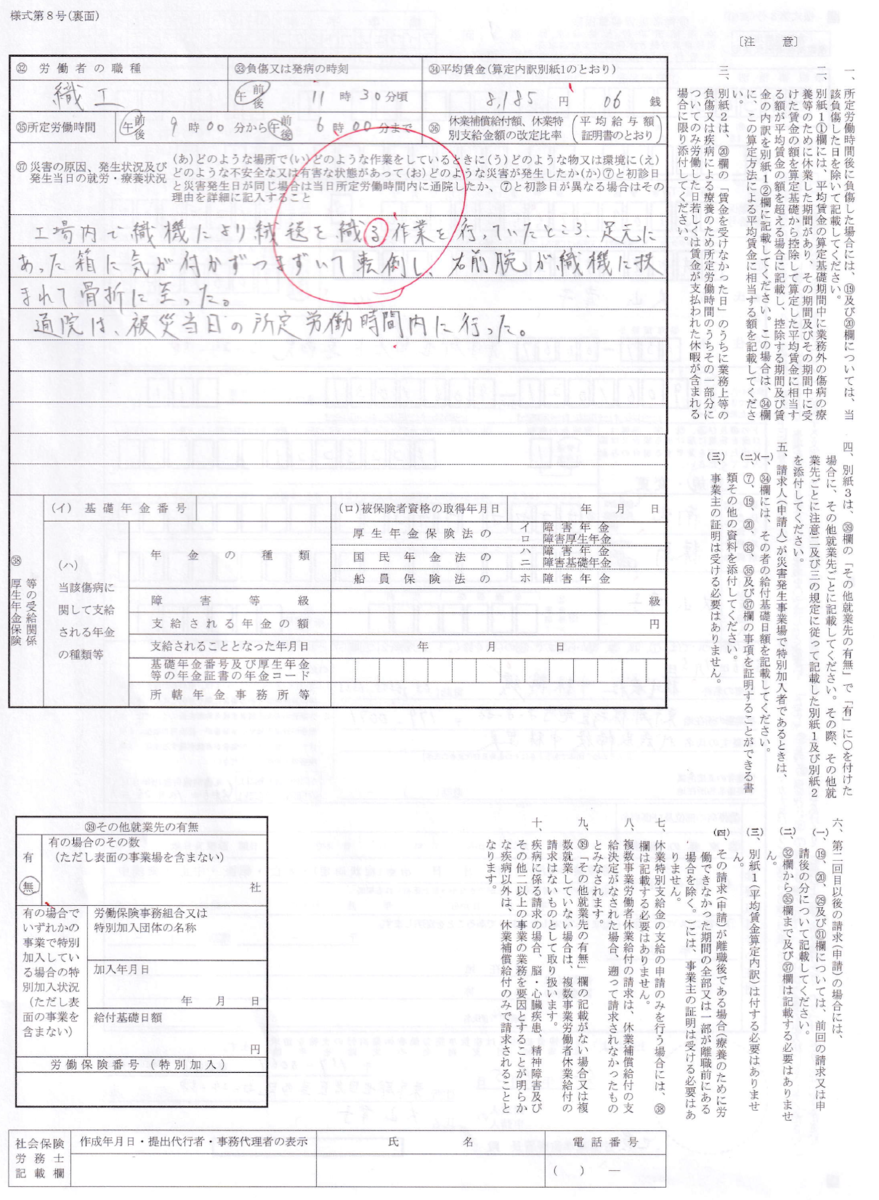 様式第8号(裏面)
㉜ 労働者の職種
㉝負傷又は発病の時刻
㉞平均賃金(算定内訳別紙1のとおり)
織工
午 前 後 11 時 30 分頃
8,185 円 06 銭
㉟所定労働時間
午 前 後 9 時 00 分から 午 前 後 6 時 00 分まで
㊱ 休業補償給付額、休業特別支給金額の改定比率 (平均給与額証明書のとおり)
㊲ 災害の原因、発生状況及び発生当日の就労・療養状況
(あ)どのような場所で(い)どのような作業をしているときに(う)どのような物又は環境に(え)
どのような不安全な又は有害な状態があって(お)どのような災害が発生したか(か)⑦と初診日
と災害発生日が同じ場合は当日所定労働時間内に通院したか、⑦と初診日が異なる場合はその
理由を詳細に記入すること
工場内で織機により絨毯を織る作業を行っていたところ、足元に
あった箱に気が付かずつまずいて転倒し、右前腕が織機に挟
まれて骨折に至った。
通院は、被災当日の所定労働時間内に行った。
㊳ 厚生年金保険等の受給関係
(イ) 基礎年金番号
(ロ)被保険者資格の取得年月日
年 月 日
(ハ)
当該傷病に
関して支給
される年金
の種類等
年金の種類
厚生年金保険法の
イ 障害年金
ロ 障害厚生年金
国民年金法の
ハ 障害年金
ニ 障害基礎年金
船員保険法の
ホ 障害年金
障害等級
級
支給される年金の額
円
支給されることとなった年月日
年 月 日
基礎年金番号及び厚生年金
等の年金証書の年金コード
所轄年金事務所等
㊴その他就業先の有無
有
無
有の場合のその数
(ただし表面の事業場を含まない)
社
有の場合で
いずれかの
事業で特別
加入してい
る場合の特
別加入状況
(ただし表
面の事業を
含まない)
労働保険事務組合又は
特別加入団体の名称
加入年月日
年 月 日
給付基礎日額
円
労働保険番号(特別加入)
社会保険
労務士
記載欄
作成年月日・提出代行者・事務代理者の表示
氏 名
電話番号
( ) ―
〔注 意〕
一、所定労働時間後に負傷した場合には、⑲及び⑳欄については、当
該負傷した日を除いて記載してください。
二、別紙1①欄には、平均賃金の算定基礎期間中に業務外の傷病の療
養等のために休業した期間があり、その期間及びその期間中に受
けた賃金の額を算定基礎から控除して算定した平均賃金に相当す
る額が平均賃金の額を超える場合に記載し、控除する期間及び賃
金の内訳を別紙1②欄に記載してください。この場合は、㉞欄
に、この算定方法による平均賃金に相当する額を記載してくださ
い。
三、別紙2は、⑳欄の「賃金を受けなかった日」のうちに業務上等の
負傷又は疾病による療養のため所定労働時間のうちその一部分に
ついてのみ労働した日若しくは賃金が支払われた休暇が含まれる
場合に限り添付してください。
四、別紙3は、㊴欄の「その他就業先の有無」で「有」に○を付けた
場合に、その他就業先ごとに記載してください。その際、その他就
業先ごとに注意二及び三の規定に従って記載した別紙1及び別紙2
を添付してください。
五、請求人(申請人)が災害発生事業場で特別加入者であるときは、
(一) ㉞欄には、その者の給付基礎日額を記載してください。
(二) ⑦、⑲、⑳、㉝、㉟及び㊲欄の事項を証明することができる書
類その他の資料を添付してください。
(三) 事業主の証明は受ける必要はありません。
六、第二回目以後の請求(申請)の場合には、
(一) ⑲、⑳、㉙及び㉛欄については、前回の請求又は申
請後の分について記載してください。
(二) ㉜欄から㉟欄まで及び㊲欄は記載する必要はありませ
ん。
(三) 別紙1(平均賃金算定内訳)は付する必要はありませ
ん。
(四) その請求(申請)が離職後である場合(療養のために労
働できなかった期間の全部又は一部が離職前にある
場合を除く。)には、事業主の証明は受ける必要はあ
りません。
七、休業特別支給金の支給の申請のみを行う場合には、㊳
欄は記載する必要はありません。
八、複数事業労働者休業給付の請求は、休業補償給付の支
給決定がなされた場合、遡って請求されなかったもの
とみなされます。
九、㊴「その他就業先の有無」欄の記載がない場合又は複
数就業していない場合は、複数事業労働者休業給付の
請求はないものとして取り扱います。
十、疾病に係る請求の場合、脳・心臓疾患、精神障害及び
その他二以上の事業の業務を要因とすることが明らか
な疾病以外は、休業補償給付のみで請求されることと
なります。